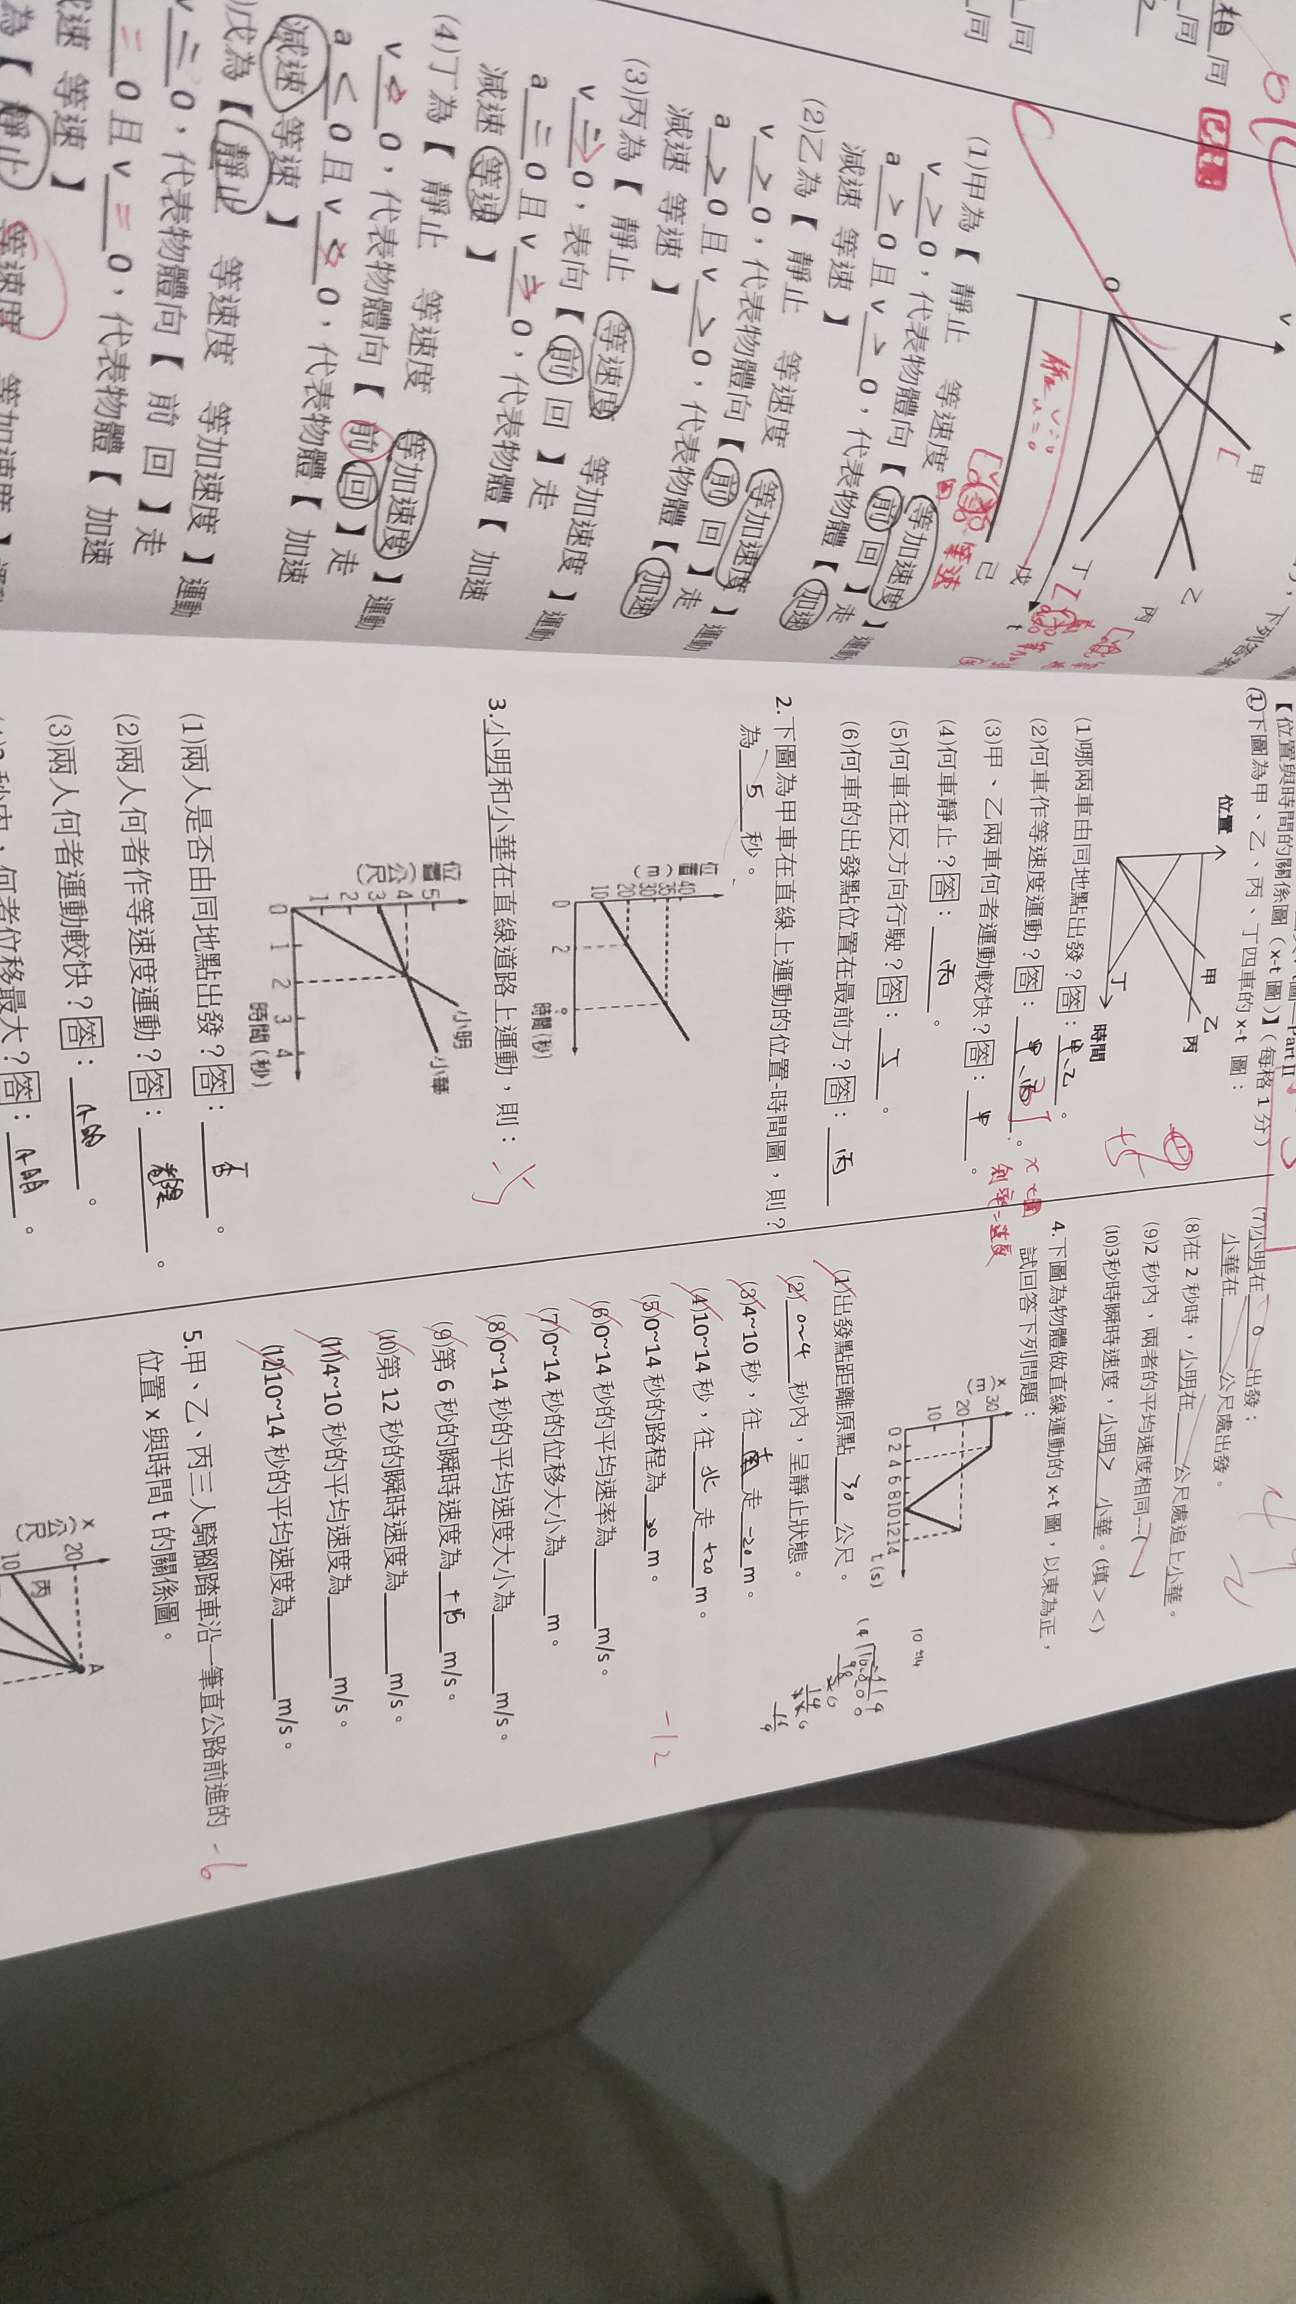 相 同
同
同
同
v
0
甲
乙
丙
丁
戊
己
t
(1)甲為【 靜止 等速度 等加速度 】運動
v > 0，代表物體向【 前 回 】走
a > 0且 v > 0，代表物體【 加速
減速 等速 】
(2)乙為【 靜止 等速度 等加速度 】運動
v > 0，代表物體向【 前 回 】走
a > 0且 v > 0，代表物體【 加速
減速 等速 】
(3)丙為【 靜止 等速度 等加速度 】運動
0，表向【 前 回 】走
a = 0且 v 0，代表物體【 加速
減速 等速 】
(4)丁為【 靜止 等速度 等加速度 】運動
v 0，代表物體向【 前 回 】走
a < 0且 v 0，代表物體【 加速
減速 等速 】
戊為【 靜止 等速度 等加速度 】運動
v = 0，代表物體向【 前 回 】走
= 0且 v = 0，代表物體【 加速
減速 等速 】
為【 靜止 等速度 等加速度 】
【位置與時間的關係圖（x-t 圖）】(每格 1 分)
①下圖為甲、乙、丙、丁四車的 x-t 圖：
位置
甲
乙
丙
丁
時間
(1)哪兩車由同地點出發？答：甲、乙。
(2)何車作等速度運動？答：
x t圖
斜率=速度
(3)甲、乙兩車何者運動較快？答：甲。
(4)何車靜止？答：丙。
(5)何車往反方向行駛？答：丁。
(6)何車的出發點位置在最前方？答：丙
2.下圖為甲車在直線上運動的位置-時間圖，則？
為 5 秒。
位置(m)
40
35
30
20
10
0 2
時間(秒)
3.小明和小華在直線道路上運動，則：
位置(公尺)
5
4
3
2
1
0 1 2 3 4
時間(秒)
小明
小華
(1)兩人是否由同地點出發？答：否。
(2)兩人何者作等速度運動？答：都是。
(3)兩人何者運動較快？答：小明。
秒內，何者位移最大？答：小明。
(7)小明在 0 出發；
小華在 公尺處出發。
(8)在 2 秒時，小明在 公尺處追上小華。
(9)2 秒內，兩者的平均速度相同
(10)3秒時瞬時速度，小明 > 小華。(填> <)
4.下圖為物體做直線運動的 x-t 圖，以東為正，
試回答下列問題：
x(m)
30
20
10
0 2 4 6 8 10 12 14
t(s)
(1)出發點距離原點 30 公尺。
(2) 0~4 秒內，呈靜止狀態。
(3)4~10 秒，往 走 -20 m。
(4)10~14 秒，往 北 走 +20 m。
(5)0~14 秒的路程為 30 m。
(6)0~14 秒的平均速率為 m/s。
(7)0~14 秒的位移大小為 m。
(8)0~14 秒的平均速度大小為 m/s。
(9)第 6 秒的瞬時速度為 m/s。
(10)第 12 秒的瞬時速度為 m/s。
(11)4~10 秒的平均速度為 m/s。
(12)10~14 秒的平均速度為 m/s。
-12
5.甲、乙、丙三人騎腳踏車沿一筆直公路前進的
位置 x 與時間 t 的關係圖。
-6
x(公尺)
20
10
丙
A